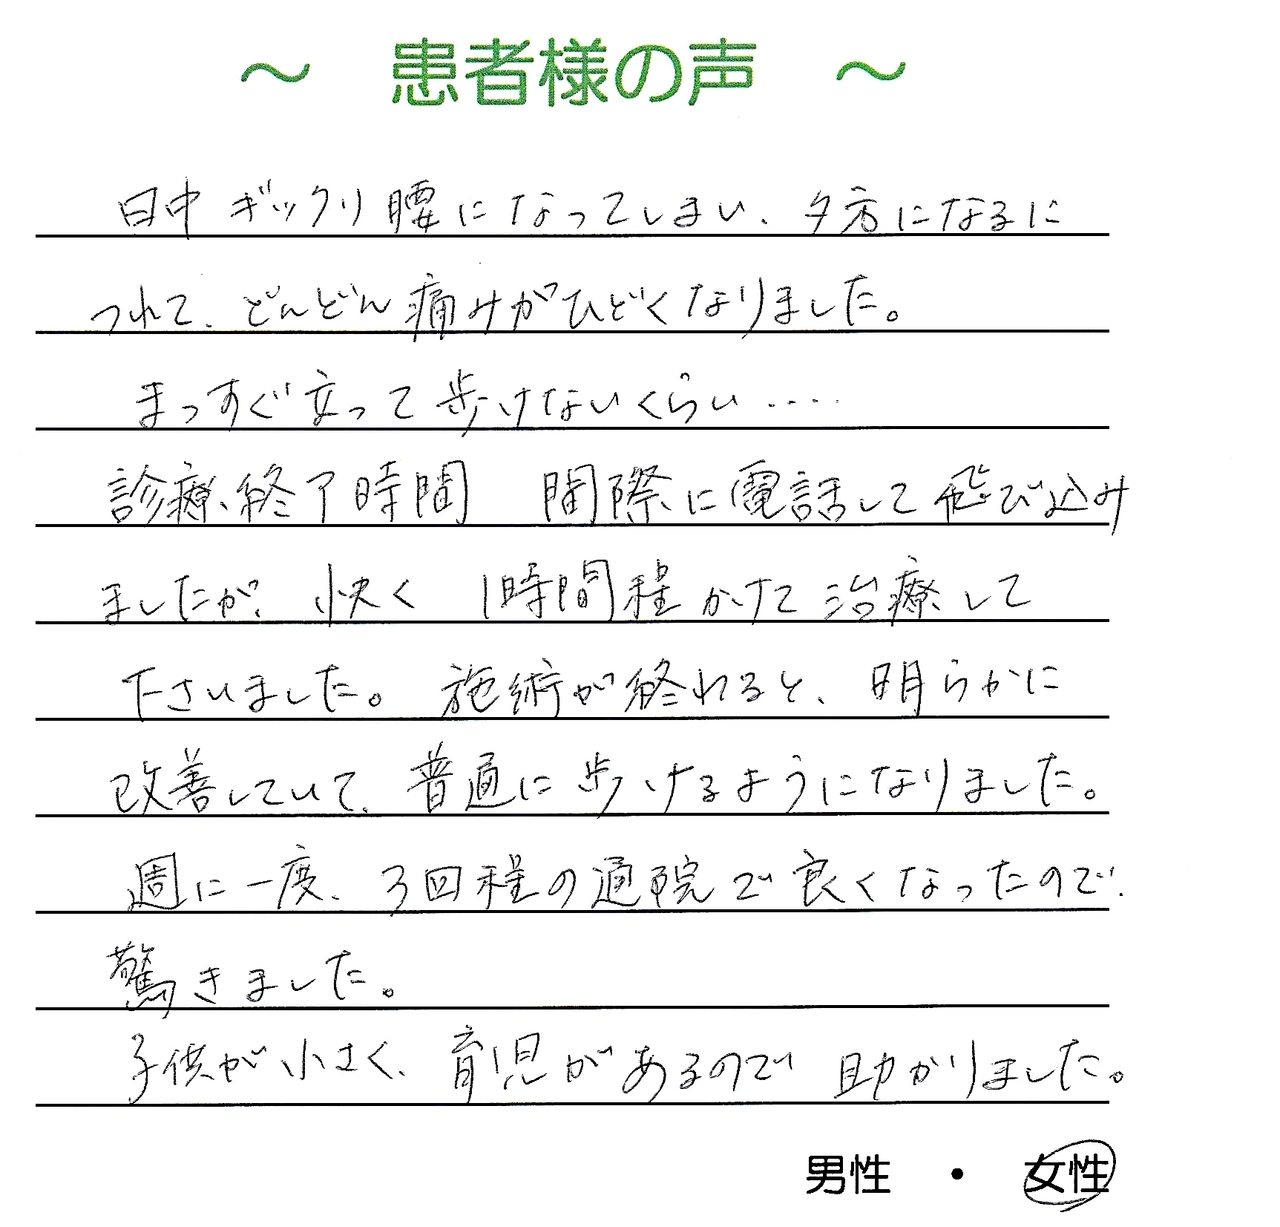 ～ 患者様の声 ～
日中 ギックリ腰になってしまい、夕方になるに
つれて、どんどん痛みがひどくなりました。
まっすぐ立って歩けないくらい‥‥
診療終了時間 間際に電話して飛び込み
ましたが、快く 1時間程かけて治療して
下さいました。 施術が終れると、明らかに
改善していて、普通に歩けるようになりました。
週に一度、3回程の通院で良くなったので、
驚きました。
子供が小さく、育児があるので 助かりました。
男性 ・ 女性